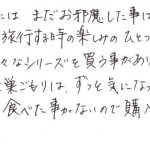 には まだお邪魔した事は
旅行する時の楽しみのひとつ
々なシリーズを買う事があり
巣ごもりは、ずっと気になっ
食べた事がないので購